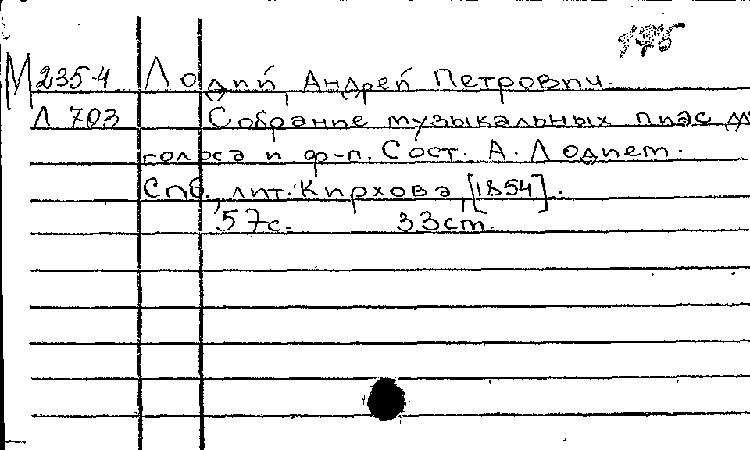 175
М 235-4 Лодий, Андрей Петрович.
Л 703 Собрание музыкальных пиэс для
голоса и ф-п. Сост. А. Лодием.
Спб., лит. Кирхова, [1854].
57с. 33см.